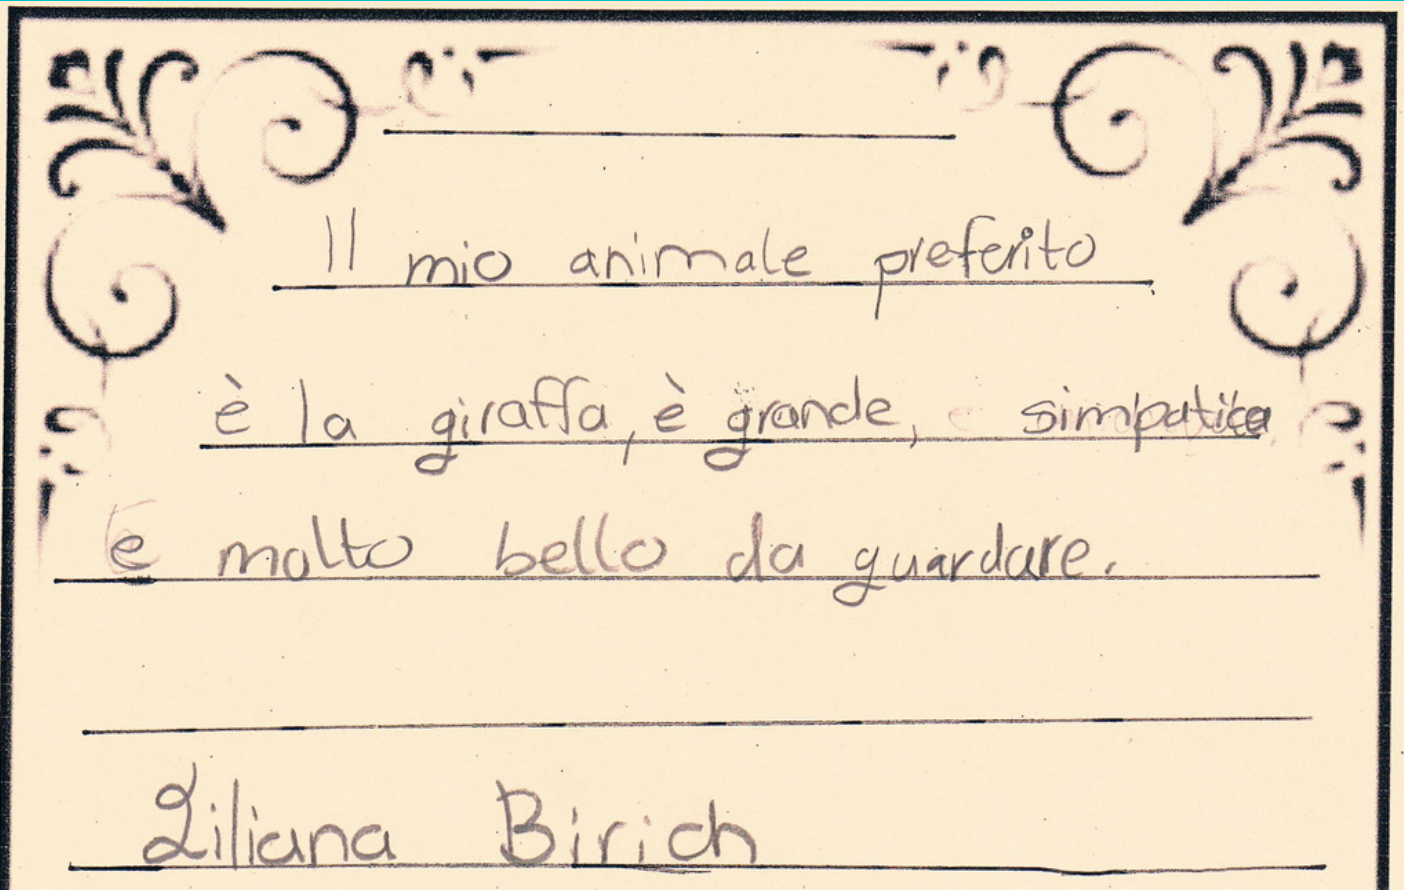 Il mio animale preferito
è la giraffa, è grande, simpatica
e molto bello da guardare.
Liliana Birich